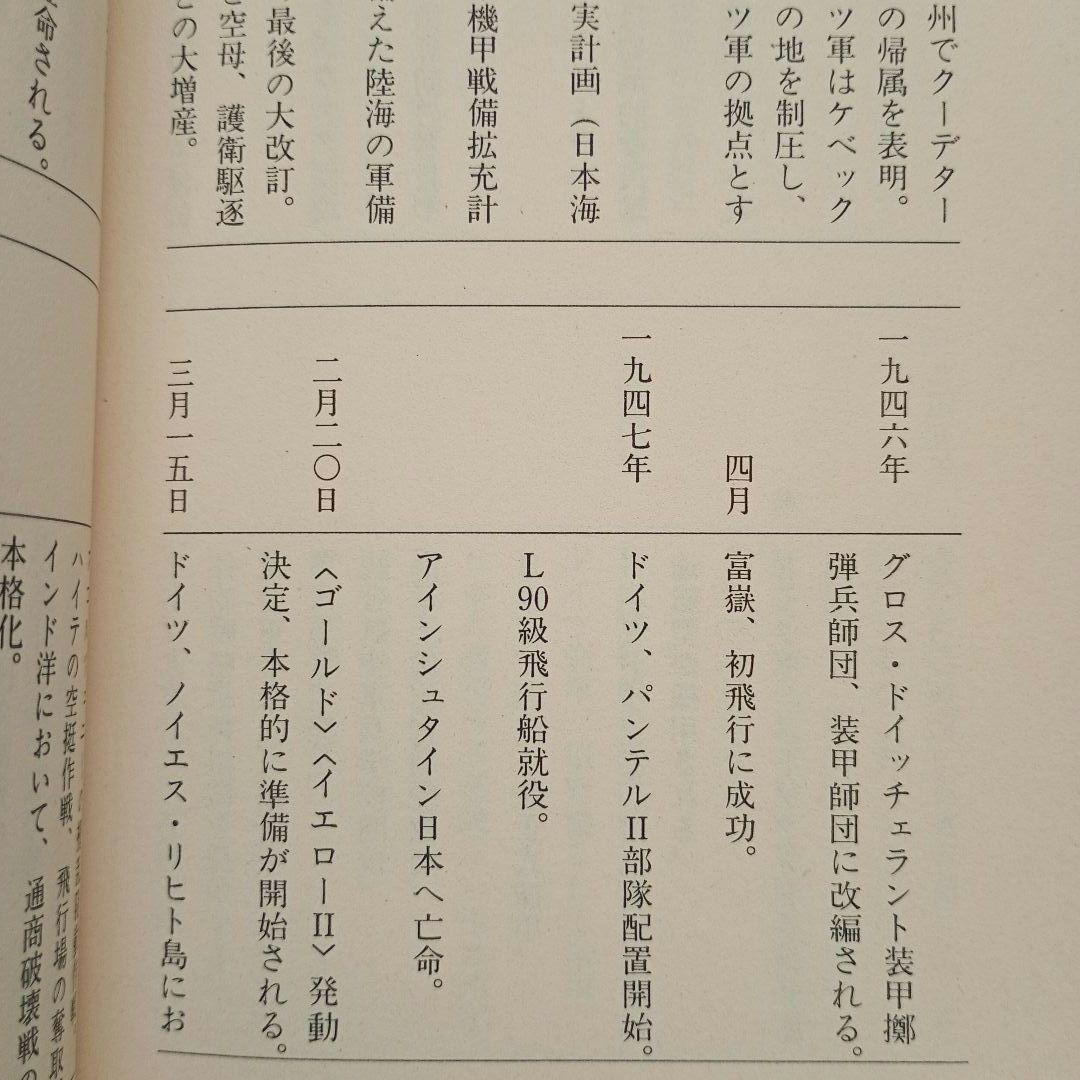 州でクーデター
の帰属を表明。
ツ軍はケベック
の地を制圧し、
ツ軍の拠点とす
実計画（日本海
機甲戦備拡充計
えた陸海の軍備
最後の大改訂。
空母、護衛駆逐
の大増産。
一九四六年
グロス・ドイッチェラント装甲擲
弾兵師団、装甲師団に改編される。
四月
富嶽、初飛行に成功。
一九四七年
ドイツ、パンテルII部隊配置開始。
L90級飛行船就役。
アインシュタイン日本へ亡命。
二月二〇日
〈ゴールド〉〈イエローII〉発動
決定、本格的に準備が開始される。
三月一五日
ドイツ、ノイエス・リヒト島にお
命される。
ハイテの空挺作戦、飛行場の奪取
インド洋において、通商破壊戦の
本格化。